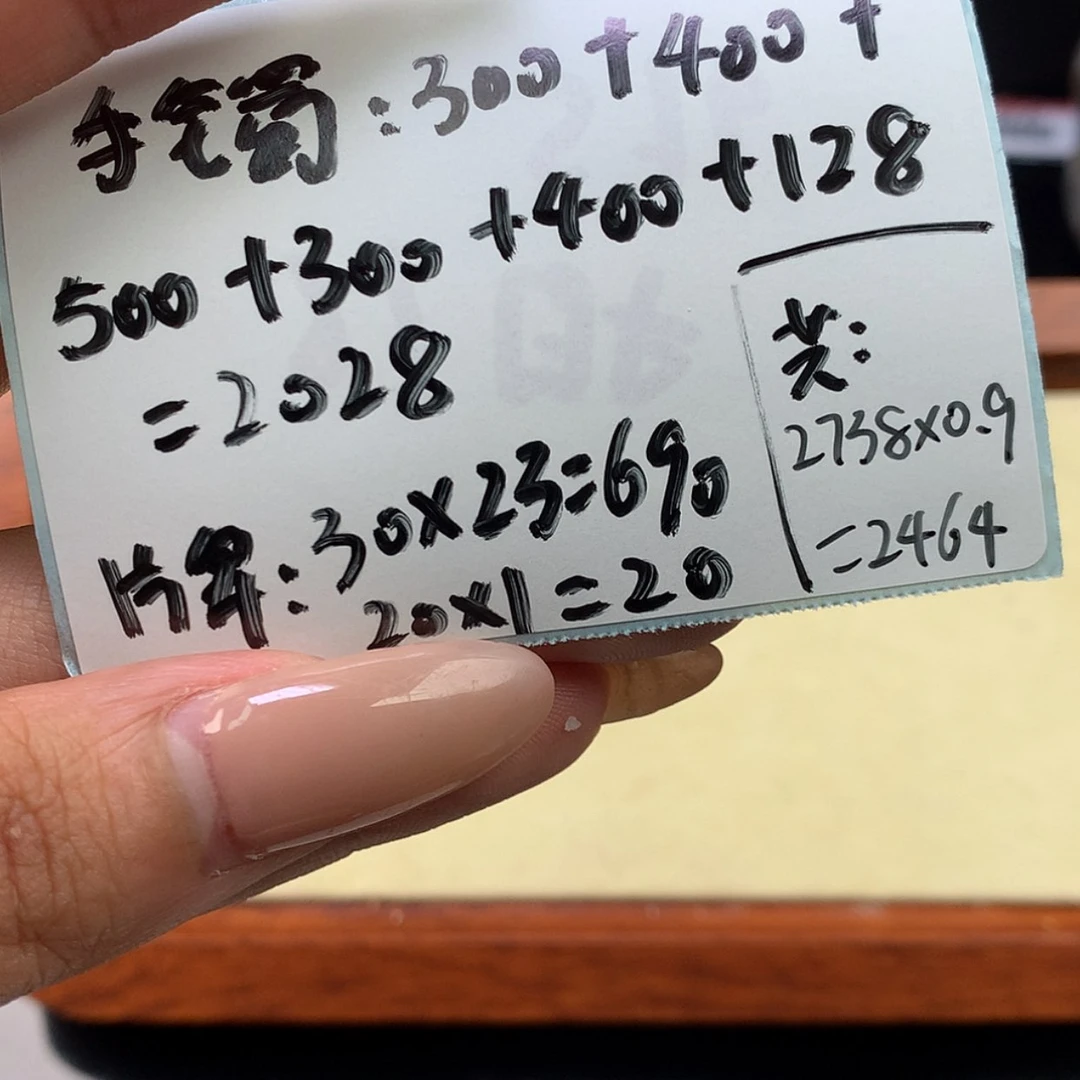 手宅筒:300+400+
500+300+400+128
=2028
片单:30×23=690
20×1=20
共:
2738×0.9
=2464